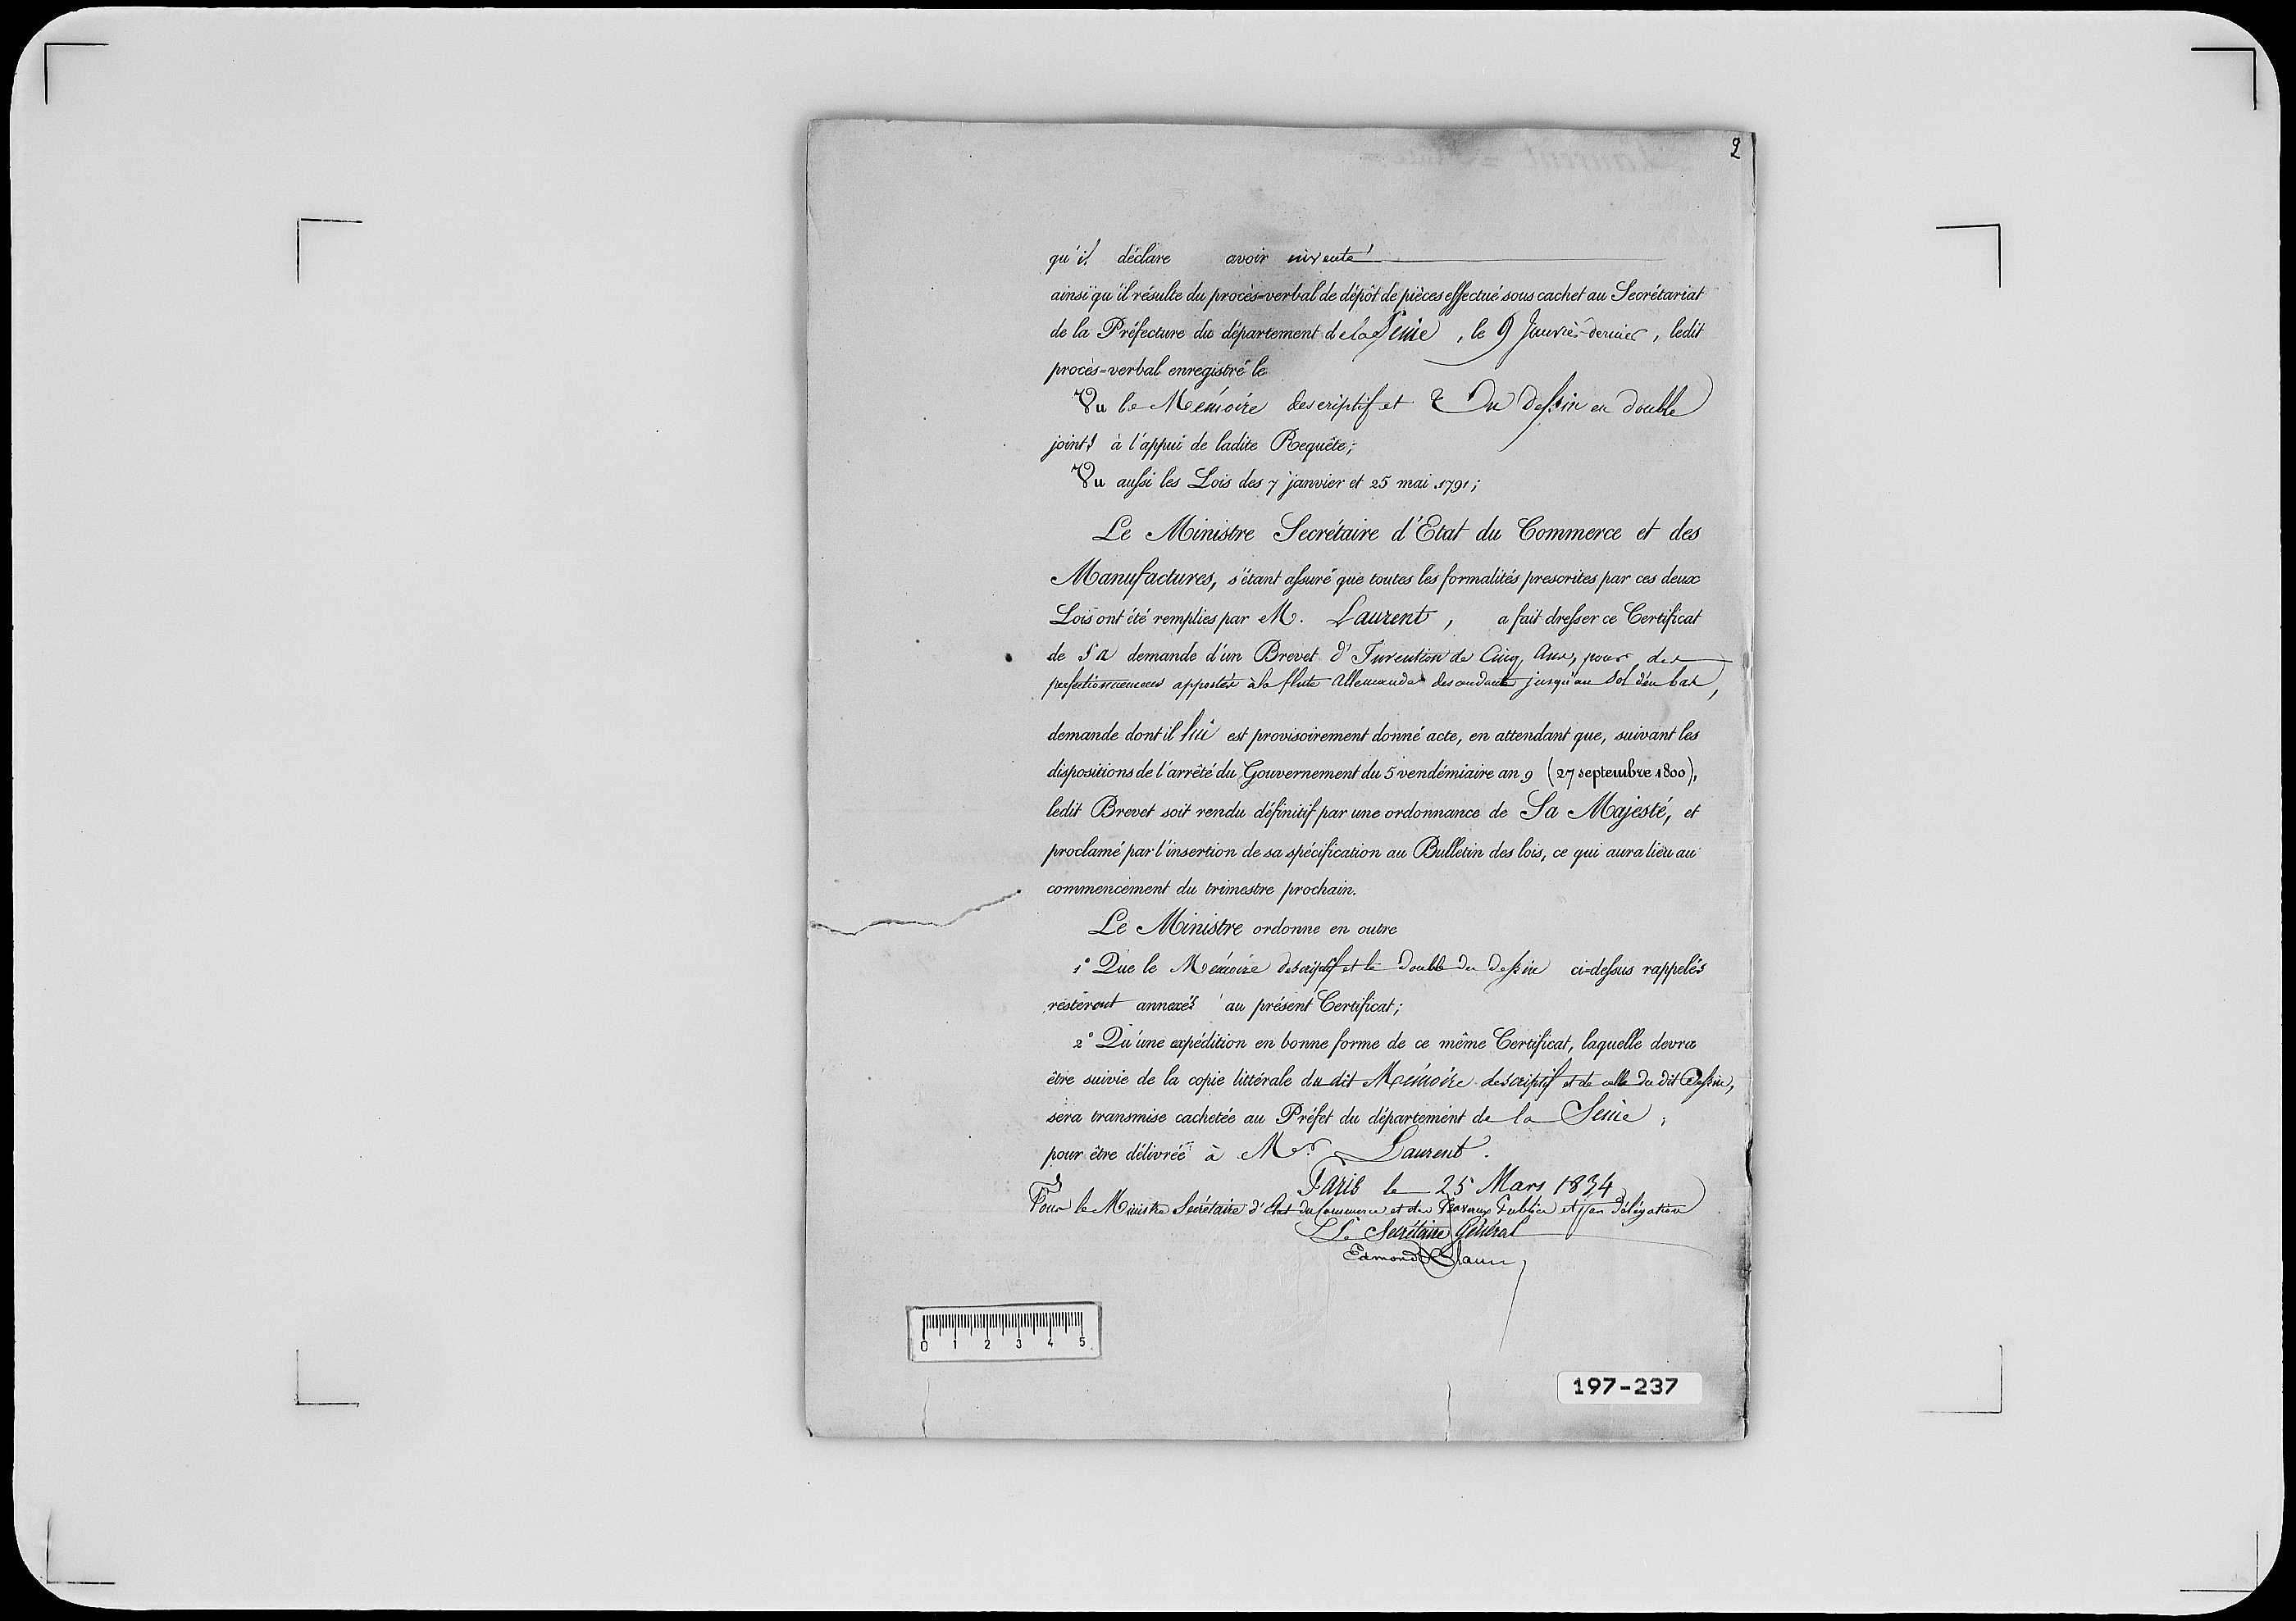 2
qu'il déclare avoir inventé
ainsi qu'il résulte du procès-verbal de dépôt de pièces effectué sous cachet au Secrétariat
de la Préfecture du département de la Seine, le 9 Janvier dernier, ledit
procès-verbal enregistré le
Vu le Mémoire descriptif et Du dessin en double
joints à l'appui de ladite Requête;
Vu aussi les Lois des 7 janvier et 25 mai 1791;
Le Ministre Secrétaire d'Etat du Commerce et des
Manufactures, s'étant assuré que toutes les formalités prescrites par ces deux
Lois ont été remplies par M. Laurent, a fait dresser ce Certificat
de sa demande d'un Brevet d'Invention de Cinq Ans, pour des
perfectionnemens apportés à la flute Allemande descendante jusqu'au Sol d'en bas,
demande dont il lui est provisoirement donné acte, en attendant que, suivant les
dispositions de l'arrêté du Gouvernement du 5 vendémiaire an 9 (27 septembre 1800),
ledit Brevet soit rendu définitif par une ordonnance de Sa Majesté, et
proclamé par l'insertion de sa spécification au Bulletin des lois, ce qui aura lieu au
commencement du trimestre prochain.
Le Ministre ordonne en outre
1° Que le Mémoire descriptif et le double du dessin ci-dessus rappelés
resteront annexés au présent Certificat;
2° Qu'une expédition en bonne forme de ce même Certificat, laquelle devra
être suivie de la copie littérale du dit Mémoire descriptif et de celle du dit Dessin,
sera transmise cachetée au Préfet du département de la Seine,
pour être délivrée à Mr. Laurent.
Paris le 25 Mars 1834
Pour le Ministre Secrétaire d'Etat du Commerce et des Travaux Publics et par Délégation
Le Secrétaire Général
Edmond Blanc
0 1 2 3 4 5
197-237